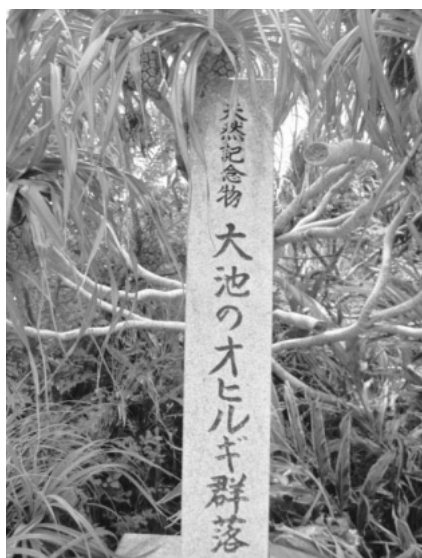 天然記念物 大池のオヒルギ群落